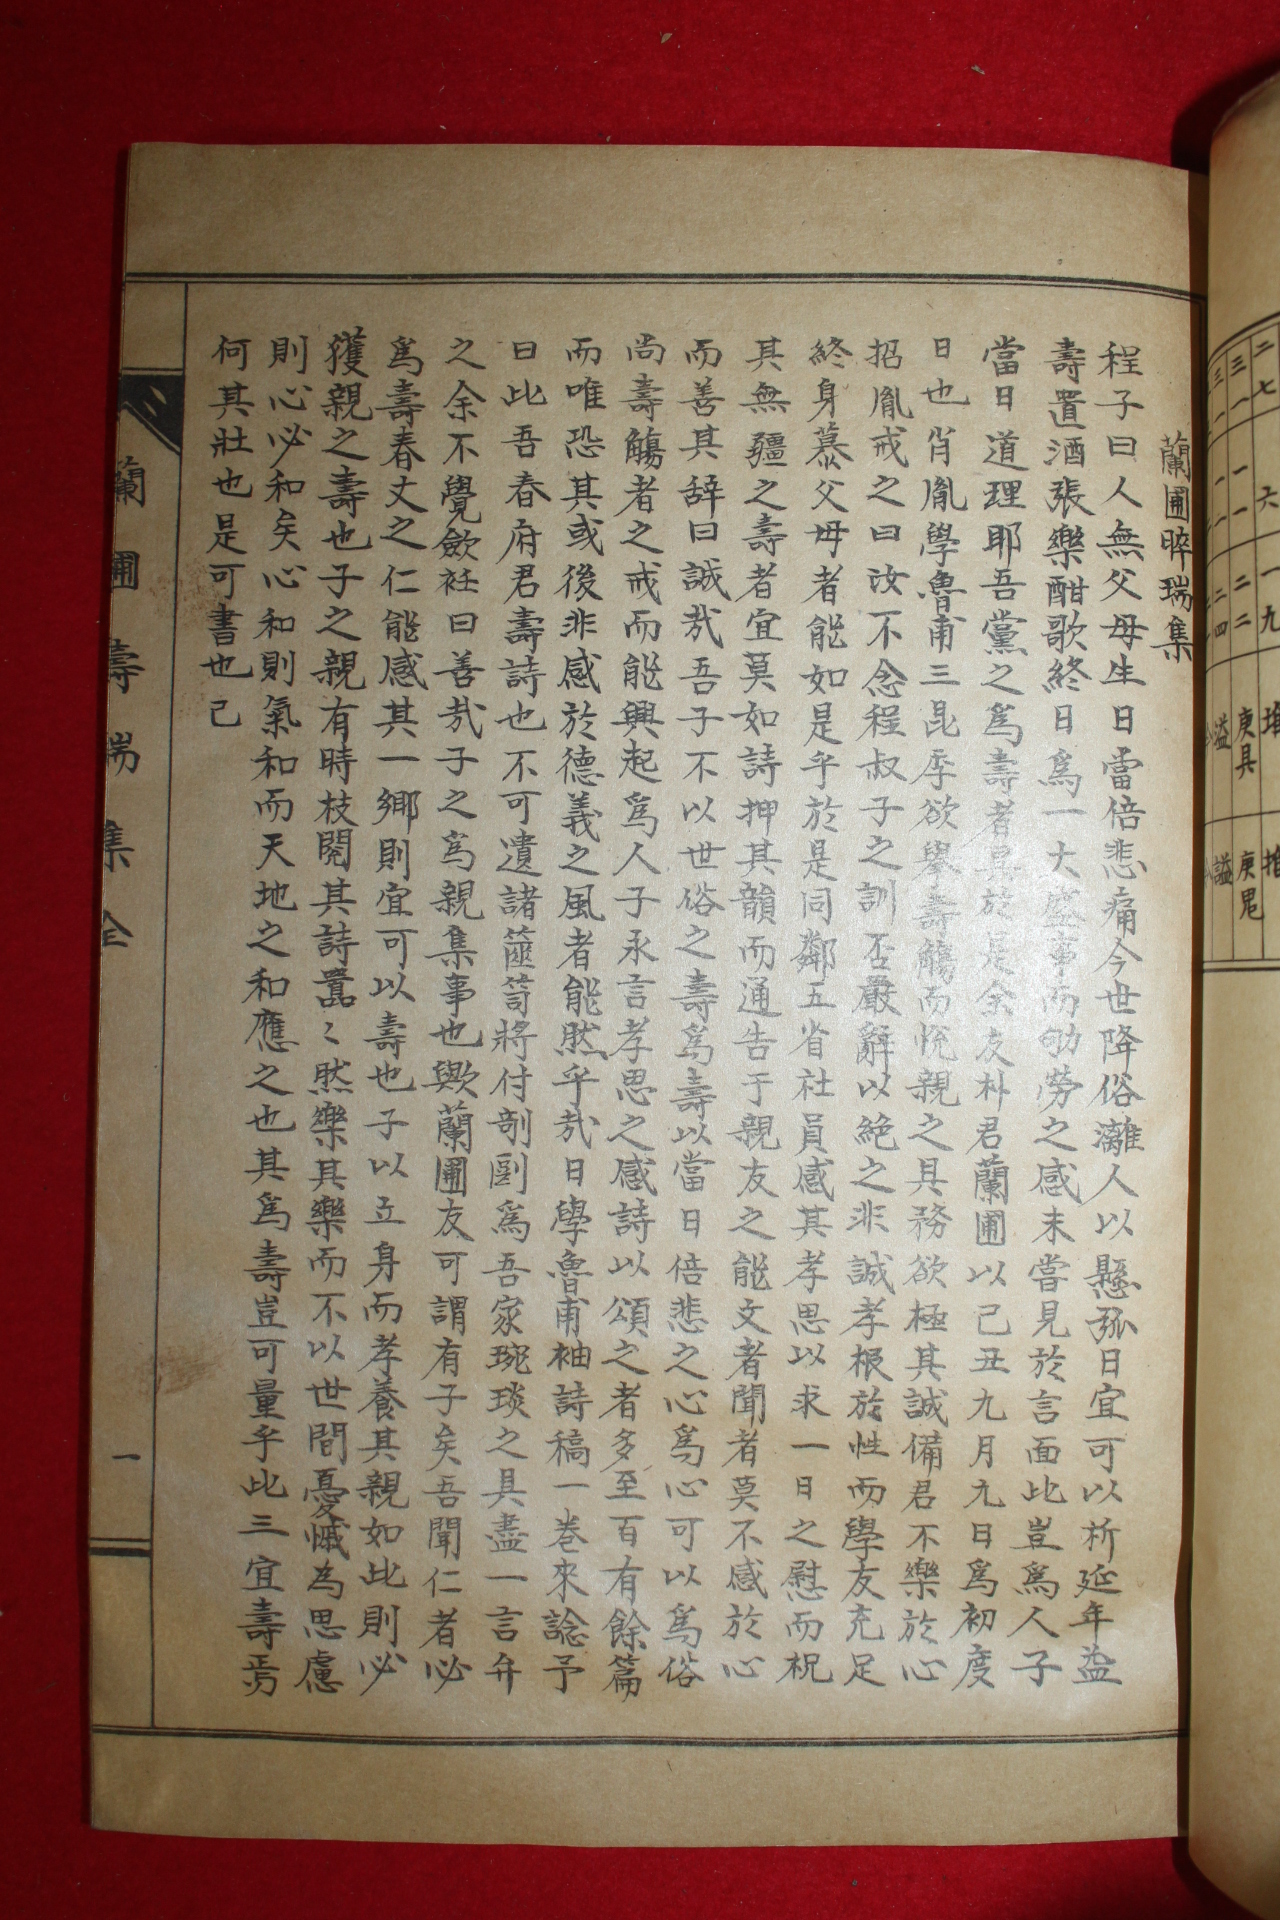 蘭圃晬瑞集
程子曰人無父母生日當倍悲痛今世降俗漓人以懸弧日宜可以祈延年益
壽置酒張樂酣歌終日爲一大盛事而劬勞之感未嘗見於言面此豈爲人子
當日道理耶吾黨之爲壽者異於是余友朴君蘭圃以己丑九月九日爲初度
日也肖胤學魯甫三昆季欲擧壽觴而悅親之具務欲極其誠備君不樂於心
招胤戒之曰汝不念程叔子之訓否嚴辭以絶之非誠孝根於性而學友充足
終身慕父母者能如是乎於是同鄰五省社員感其孝思以求一日之慰而祝
其無疆之壽者宜莫如詩押其韻而通告于親友之能文者聞者莫不感於心
而善其辞曰誠哉吾子不以世俗之壽爲壽以當日倍悲之心爲心可以爲俗
尚壽觴者之戒而能興起爲人子永言孝思之感詩以頌之者多至百有餘篇
而唯恐其或後非感於德義之風者能然乎哉日學魯甫袖詩稿一卷來諗予
曰此吾春府君壽詩也不可遺諸篋笥將付剞劂爲吾家琬琰之具盍一言弁
之余不覺斂衽曰善哉子之爲親集事也歟蘭圃友可謂有子矣吾聞仁者必
爲壽春丈之仁能感其一鄉則宜可以壽也子以立身而孝養其親如此則必
獲親之壽也子之親有時枝閱其詩囂〻然樂其樂而不以世間憂慽為思慮
則心必和矣心和則氣和而天地之和應之也其爲壽豈可量乎比三宜壽焉
何其壯也是可書也已
蘭圃壽瑞集全
一